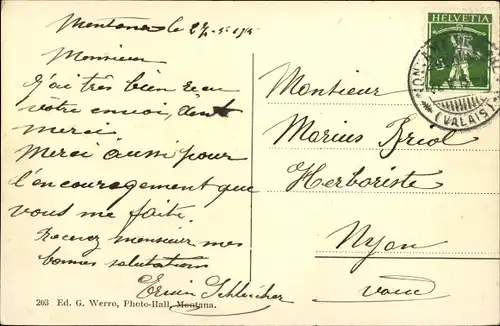 Montana le
Monsieur
J'ai très bien reçu
votre envoi, dont
merci.
Merci aussi pour
l'encouragement que
vous me faite.
Recevez monsieur mes
bonnes salutations
Erwin Schleicher
203 Ed. G. Werro, Photo-Hall, Montana.
HELVETIA
(VALAIS)
Monsieur
Marius Briol
Herboriste
Nyon
Vaud